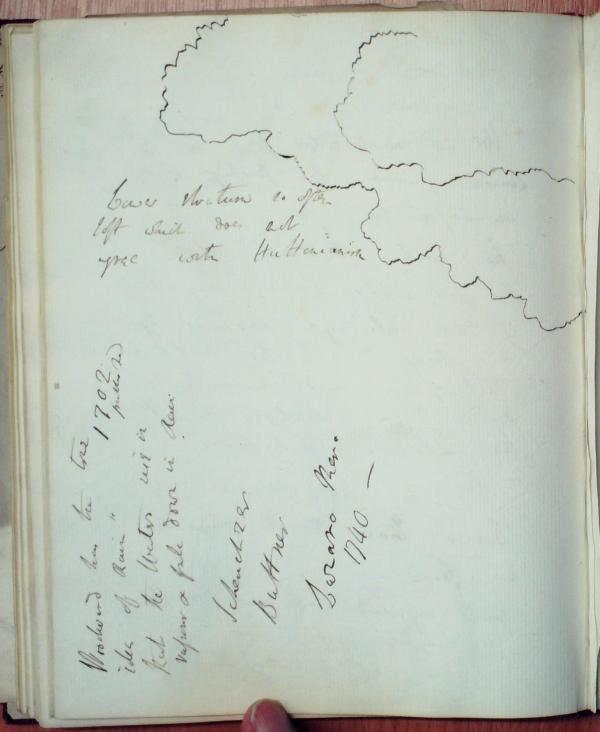 Lower stratum is often
left which does not
agree with Huttonianism
Woodward has the true
idea of Rain "
1702
published
that the Waters rise in
vapour & fall down in Rain
Scheuchzer
Buttner
Lazaro Moro
1740 —